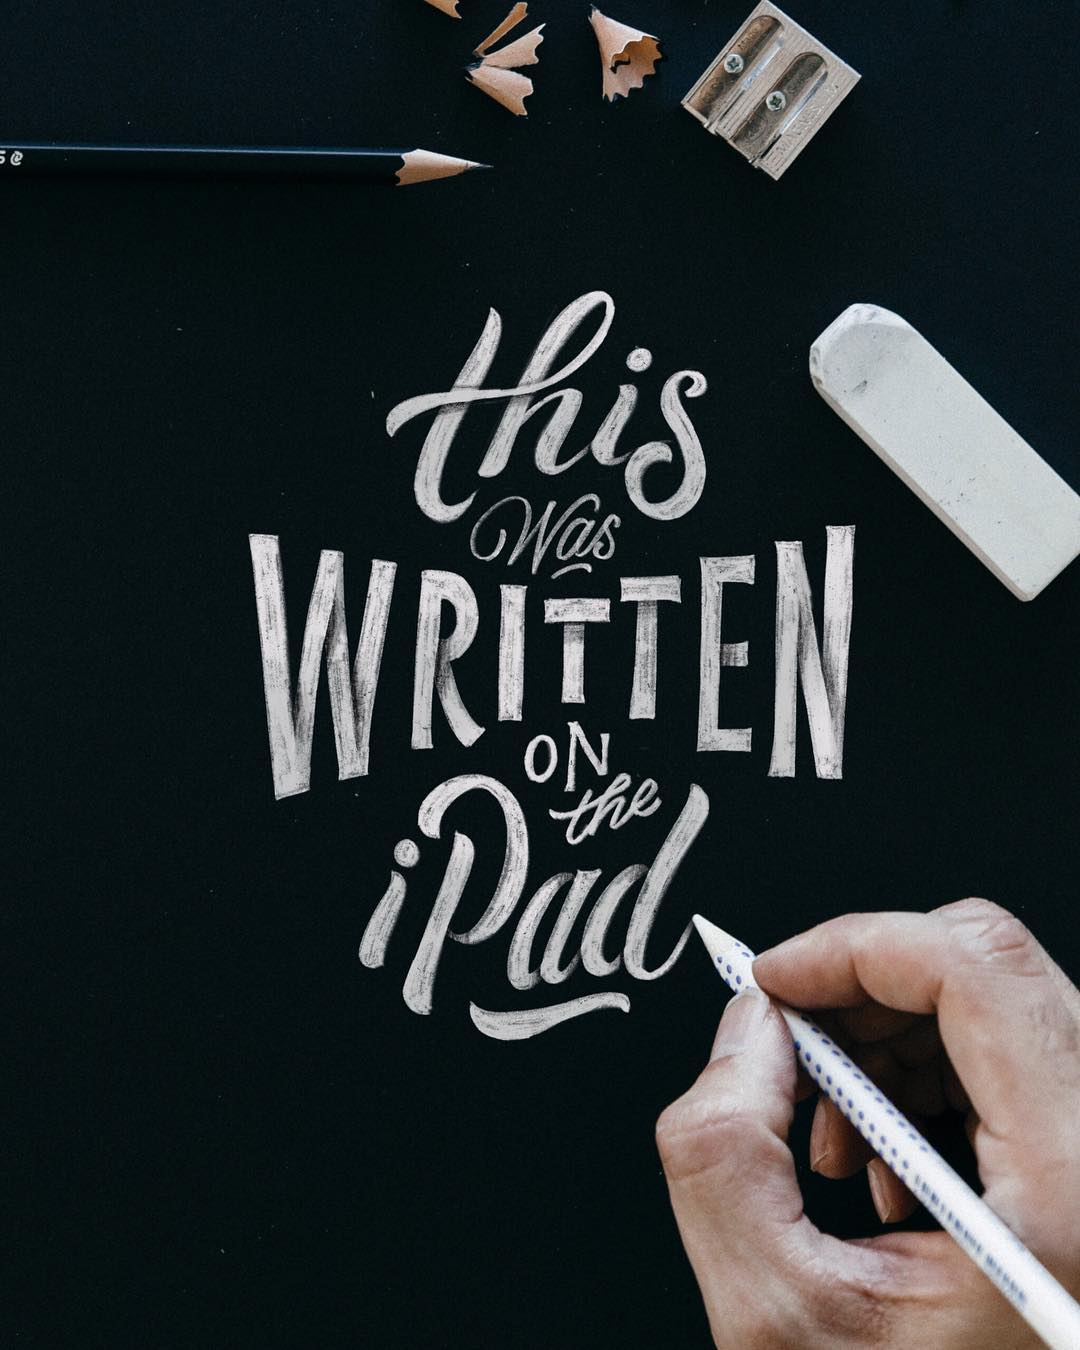 this
Was
WRITTEN
ON
the
iPad